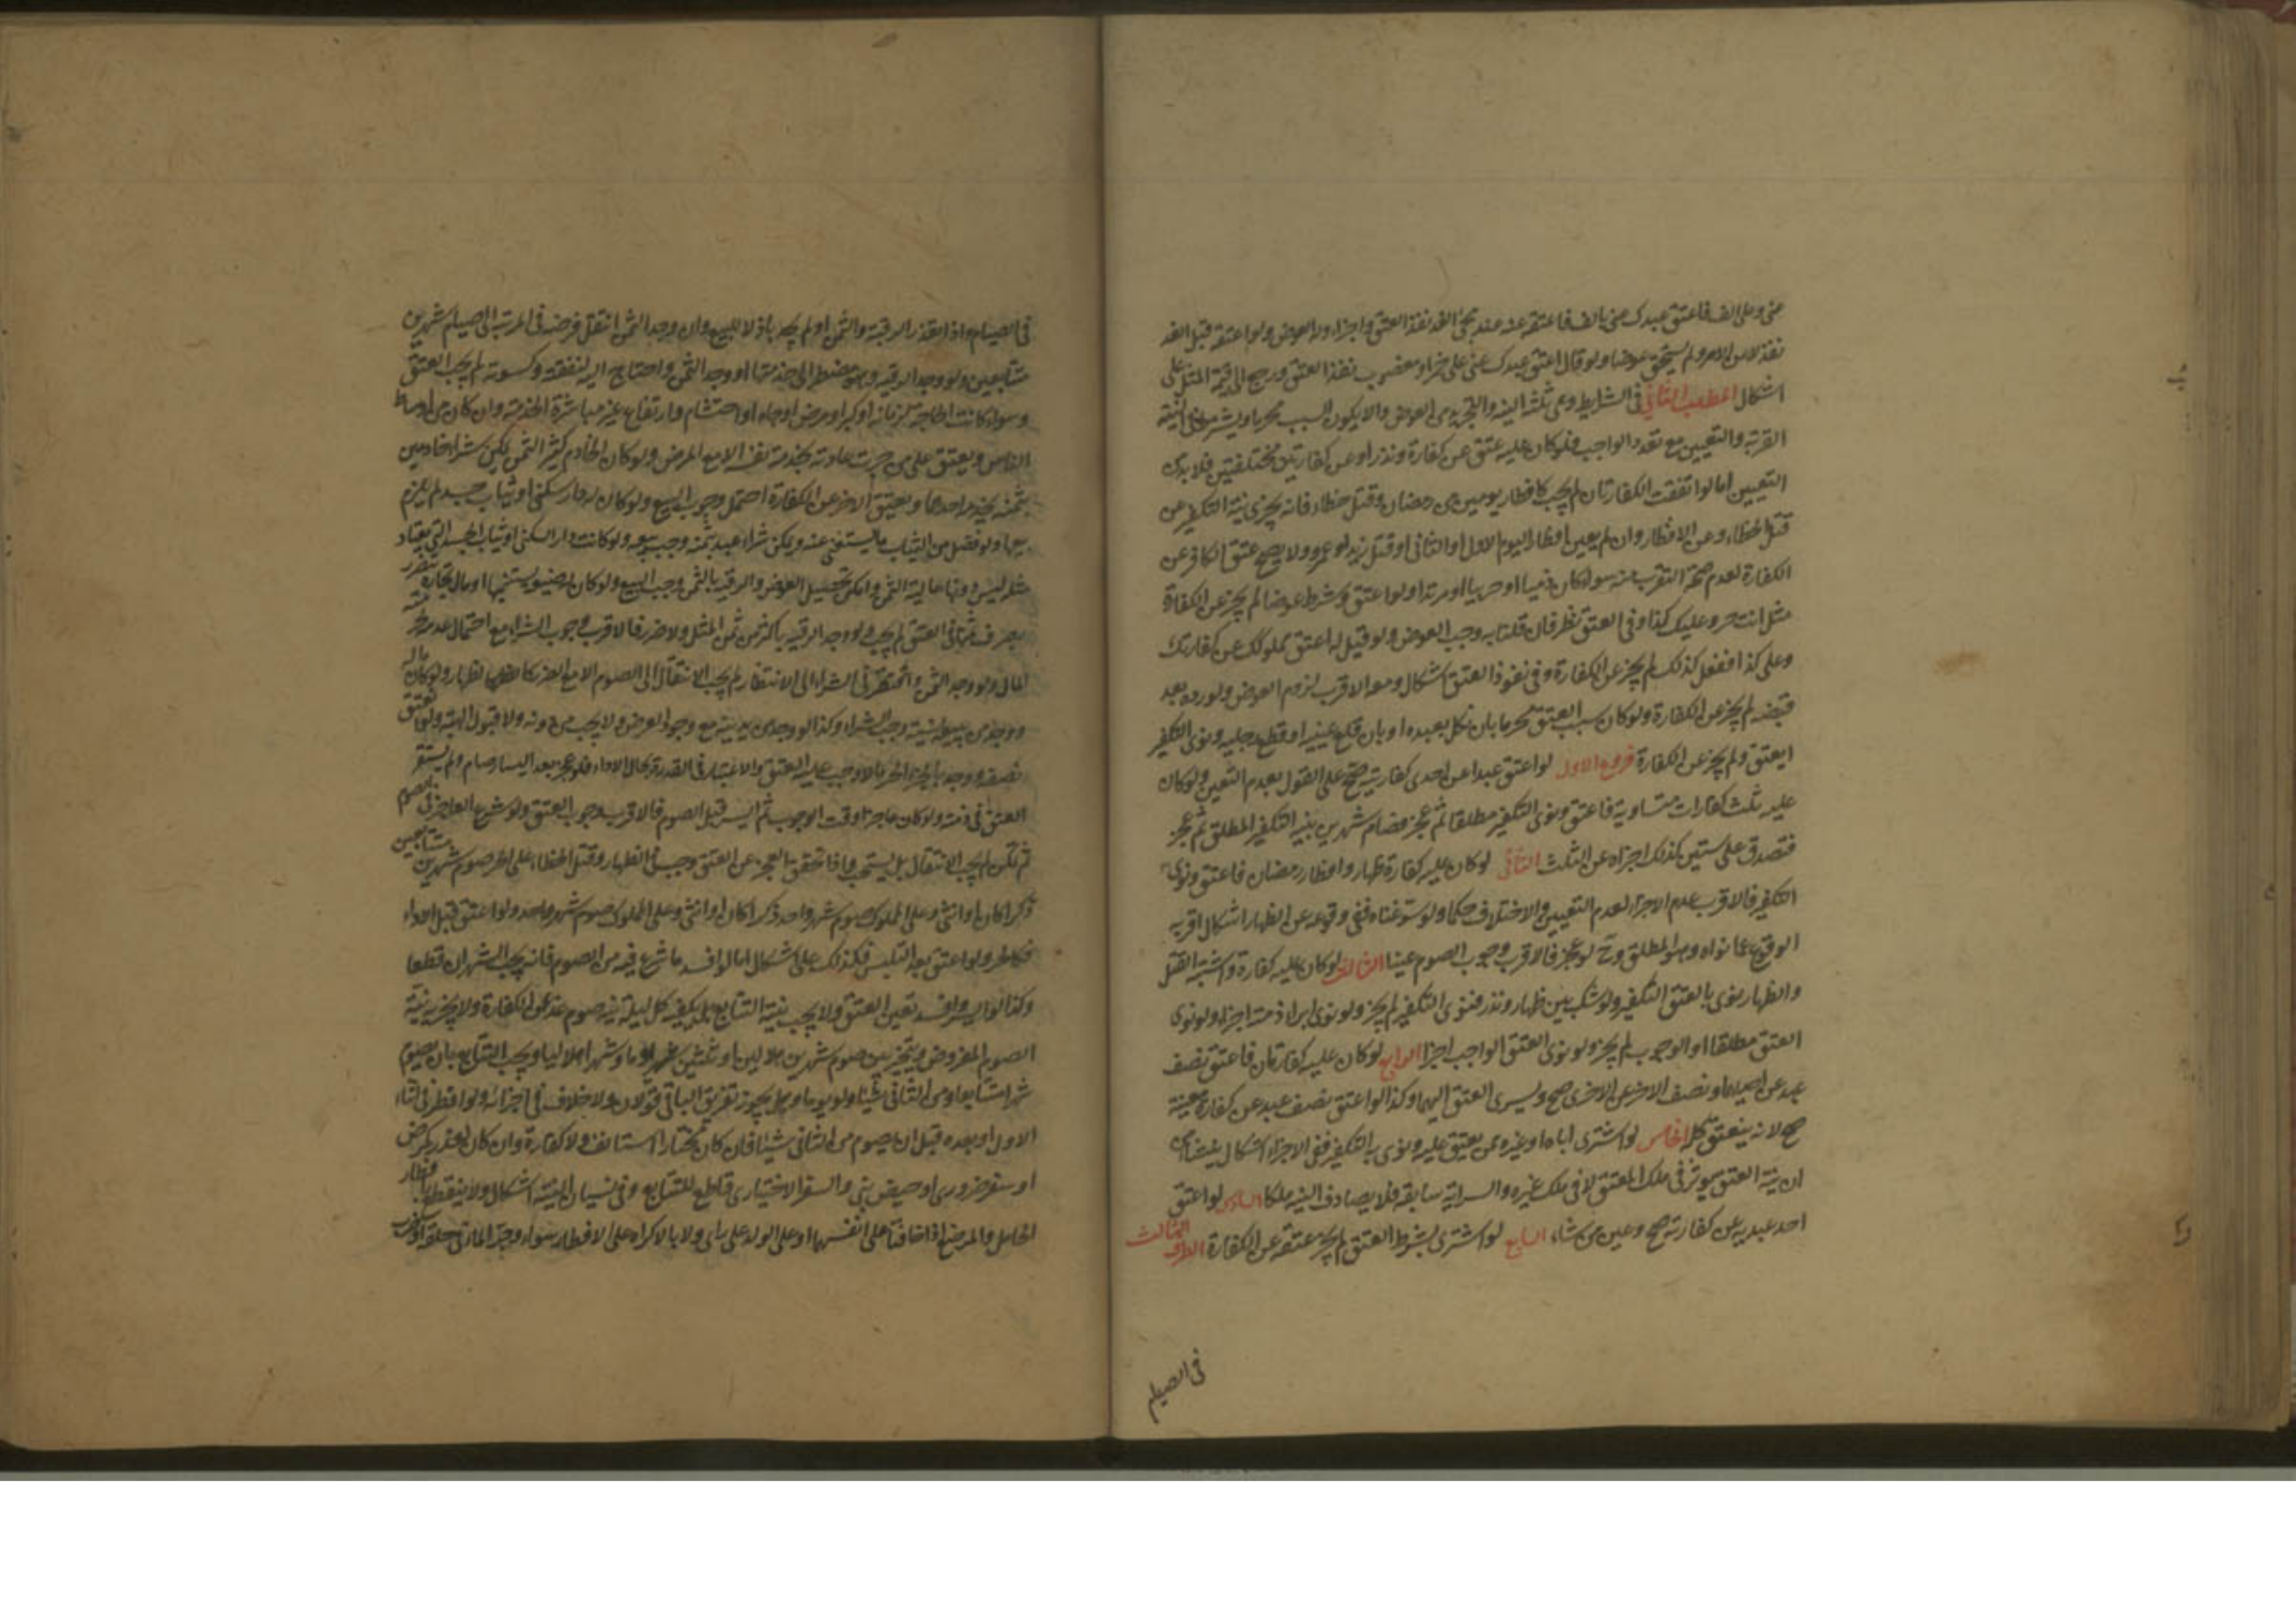 عنى وعلى الف فاعتق عبدك عنى بالف فاعتقه عنه عند مجئ الغد نفذ العتق واجزاء وله العوض ولو اعتقه قبل الغد
نفذ لا عن الامر ولم يستحق عوضا ولو قال اعتق عبدك عنى على خمر او مغصوب نفذ العتق ورجع الى قيمة المثل على
اشكال المطلب الثانى فى الشرايط وهى ثلثة النيه والتجريد عن العوض والا يكون السبب محرما ويشترط فى النية
القربة والتعيين مع تعدد الواجب فلو كان عليه عتق عن كفارة ونذر او عن كفارتين مختلفتين فلا بد من
التعيين اما لو اتفقت الكفارتان لم يجب كافطار يومين من رمضان وقتل خطاء فانه يجزى نية التكفير عن
قتل الخطاء وعن الافطار وان لم يعين افطار اليوم الاول او الثانى او قتل زيد او عمرو ولا يصح عتق الكافر عن
الكفارة لعدم صحة التقرب منه سواء كان ذميا او حربيا او مرتدا ولو اعتق وشرط عوضا لم يجز عن الكفارة
مثل انت حر وعليك كذا وفى العتق نظر فان قلنا به وجب العوض ولو قيل له اعتق مملوكك عن كفارتك
وعلى كذا ففعل كذلك لم يجز عن الكفارة وفى نفوذ العتق اشكال ومعه الاقرب لزوم العوض ولو رده بعد
قبضه لم يجز عن الكفارة ولو كان سبب العتق محرما بان نكل بعبده او بان قلع عينيه او قطع رجليه ونوى التكفير
انعتق ولم يجز عن الكفارة فروع الاول لو اعتق عبدا عن احدى كفارتيه صح على القول بعدم التعيين ولو كان
عليه ثلث كفارات متساوية فاعتق ونوى التكفير مطلقا ثم عجز فصام شهرين بنية التكفير المطلق ثم عجز
فتصدق على ستين كذلك اجزاه عن الثلث الثانى لو كان عليه كفارة ظهار وافطار رمضان فاعتق ونوى
التكفير فالاقرب عدم الاجزاء لعدم التعيين والاختلاف حكما ولو سوغناه ففى وقوعه عن الظهار اشكال اقربه
الوقوع عما نواه وهو المطلق وح لو عجز فالاقرب وجوب الصوم عينا الثالث لو كان عليه كفارة واشتبه القتل
والظهار ينوى بالعتق التكفير ولو شك بين ظهار ونذر فنوى التكفير لم يجز ولو نوى ابراء ذمته اجزاء ولو نوى
العتق مطلقا او الوجوب لم يجز ولو نوى العتق الواجب اجزا الرابع لو كان عليه كفارتان فاعتق نصف
عبد عن احديهما ونصف الاخر عن الاخرى صح ويسرى العتق اليهما وكذا لو اعتق نصف عبد عن كفارة معينة
صح لانه ينعتق كله الخامس لو اشترى اباه او غيره ممن ينعتق عليه ونوى به التكفير ففى الاجزاء اشكال ينشأ من
ان نية العتق يؤثر فى ملك المعتق لا فى ملك غيره والسراية سابقة فلا يصادف النية ملكا السادس لو اعتق
احد عبديه عن كفارته صح وعين من شاء السابع لو اشترى بشرط العتق لم يجز عتقه عن الكفارة الطرف الثالث
فى الصيام
فى الصيام واذا تعذر الرقبة والثمن او لم يجد باذلا للبيع وان وجد الثمن انتقل فرضه فى المرتبة الى صيام شهرين
متتابعين ولو وجد الرقبة وهو مضطر الى خدمتها او وجد الثمن واحتاج اليه لنفقته وكسوته لم يجب العتق
وسواء كانت الحاجة لزمانة او كبر او مرض او جاه او احتشام وارتفاع عن مباشرة الخدمة وان كان من اوساط
الناس ويعتق على من جرت عادته بخدمة نفسه الا مع المرض ولو كان الخادم كثير الثمن يمكن شراء خادمين
بثمنه يخدمه احدهما ويعتق الاخر عن الكفارة احتمل وجوب البيع ولو كان له دار سكنى او ثياب جسد لم يلزم
بيعها ولو فضل من الثياب ما يستغنى عنه ويمكن شراء عبد بثمنه وجب بيعه ولو كانت دار السكنى او ثياب الجسد التى يعتاد
مثله ليس دونها غالية الثمن وامكن تحصيل العوض والرقبة بالثمن وجب البيع ولو كان له ضيعة يستنميها او مال تجارة يتضرر
بصرف ثمنها فى العتق لم يجب ولو وجد الرقبة باكثر من ثمن المثل ولا ضرر فالاقرب وجوب الشراء مع احتمال عدمه
المال ولو وجد الثمن وافتقر فى الشراء الى الانتظار لم يجب الانتقال الى الصوم الا مع الضرر كالظهار ولو كان ماله
ووجد من يبيعه نسيئة وجب الشراء وكذا لو وجد من يدينه مع وجود العوض ولا يجب من دونه ولا قبول الهبة ولو اعتق
نصفه ووجد بالجزء الحر مالا وجب عليه العتق والاعتبار فى القدرة بحال الاداء فلو عجز بعد اليسار صام ولم يستقر
العتق فى ذمته ولو كان عاجزا وقت الوجوب ثم ايسر قبل الصوم فالاقرب وجوب العتق ولو شرع العاجز فى الصوم
ثم تمكن لم يجب الانتقال بل يستحب واذا تحقق العجز عن العتق وجب فى الظهار وقتل الخطاء على الحر صوم شهرين متتابعين
ذكرا كان او انثى وعلى المملوك صوم شهر واحد ذكرا كان او انثى وعلى المملوك صوم شهر واحد ولو اعتق قبل الاداء
فكالحر ولو اعتق بعد التلبس فكذلك على اشكال اما لو افسد ما شرع فيه من الصوم فانه يجب الشهران قطعا
وكذا لو ايسر وافسد تعين العتق ولا يجب نية التتابع بل يكفيه كل ليلة نية صوم غد عن الكفارة ولا يجزيه نية
الصوم المفروض ويتخير بين صوم شهرين هلاليين او ثلثين يوما وشهرا هلاليا ويجب التتابع بان يصوم
شهرا متتابعا ومن الثانى شيئا ولو يوما وهل يجوز تفريق الباقى قولان ولا خلاف فى اجزائه ولو افطر فى اثناء
الاول او بعده قبل ان يصوم من الثانى شيئا فان كان مختارا استانف ولا كفارة وان كان لعذر كمرض
او سفر ضرورى او حيض بنى والسفر الاختيارى قاطع للتتابع وفى نسيان النية اشكال ولا ينقطع بافطار
الحامل والمرضع اذا خافتا على انفسهما او على الولد على راى ولا بالاكراه على الافطار سواء وجر الماء فى حلقه او ضرب